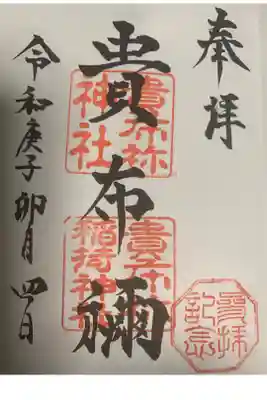 奉拝
貴布禰
貴布祢
神社
貴布祢
稲荷神社
参拝
記念
令和庚子卯月四日